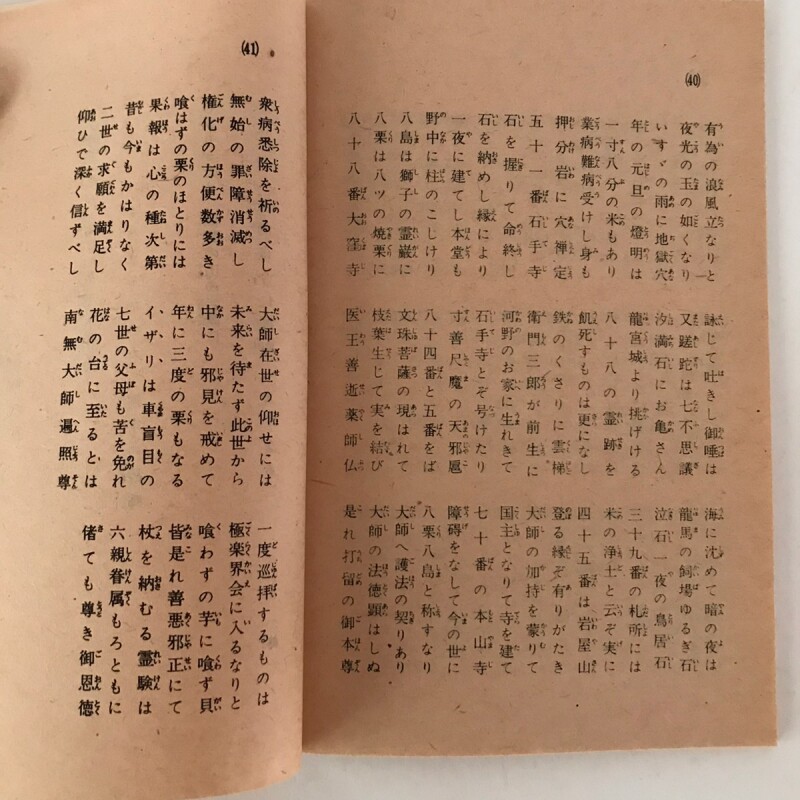 (40)
有為の浪風立なりと 詠じて吐きし御唾は 海に沈めて暗の夜は
夜光の玉の如くなり 又蹉跎は七不思議 龍馬の飼場ゆるぎ石
いすゞの雨に地獄穴 汐満石にお亀さん 泣石一夜の鳥居石
年の元旦の燈明は 龍宮城より挑げける 三十九番の札所には
一寸八分の米もあり 八十八の霊跡を 米の浄土と云ぞ実に
業病難病受けし身も 飢死すものは更になし 四十五番は岩屋山
押分岩に穴禅定 鉄のくさりに雲梯 登る縁ぞ有りがたき
五十一番石手寺 衛門三郎が前生に 大師の加持を蒙りて
石を握りて命終し 河野のお家に生れきて 国主となりて寺を建て
石を納めし縁により 石手寺とぞ号けたり 七十番の本山寺
一夜に建てし本堂も 寸善尺魔の天邪 障碍をなして今の世に
野中に柱のこしけり 八十四番と五番をば 八栗八島と称すなり
八島は獅子の霊巌に 文珠菩薩の現はれて 大師へ護法の契りあり
八栗は八ツの焼栗に 枝葉生じて実を結び 大師の法徳顕はしぬ
八十八番大窪寺 医王善逝薬師仏 是れ打留の御本尊
(41)
衆病悉除を祈るべし 大師在世の仰せには 一度巡拝するものは
無始の罪障消滅し 未来を待たず此世から 極楽界会に入るなりと
権化の方便数多き 中にも邪見を戒めて 喰わずの芋に喰ず貝
喰はずの栗のほとりには 年に三度の栗もなる 皆是れ善悪邪正にて
果報は心の種次第 イザリは車盲目の 杖を納むる霊験は
昔も今もかはりなく 七世の父母も苦を免れ 六親眷属もろともに
二世の求願を満足し 花の台に至るとは 偖ても尊き御恩徳
仰ひで深く信ずべし 南無大師遍照尊